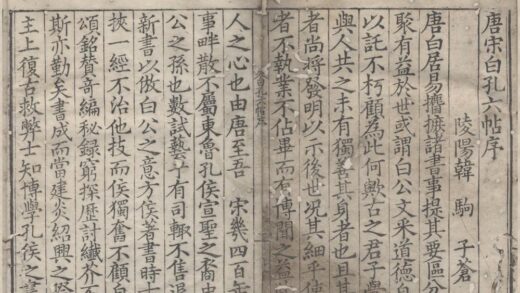 唐宋白孔六帖序
陵陽韓 駒 子蒼
唐白居易攟摭諸書事提其要區分
聚有益於世或謂白公文采道德自
以託不朽顧為此何歟古之君子學
與人共之未有獨善其身者也且其
者尚將發明以示後世況其細乎使
者不執業不佔畢而有博聞之益
人之心也由唐至吾 宋幾四百年
事畔散不屬東魯孔侯宣聖之裔
公之孫也數試藝于有司輒不售退
新書以倣白公之意方侯著書時士
挾一經不治他技而侯獨奮不顧
頌銘贊奇編秘録窮探歷討纖芥不
斯亦勤矣書成而當建炎紹興之
主上復古救弊士知博學孔侯之書